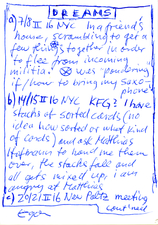 DREAMS
a) 7/8 II 16 NYC In a friend's
house, scrambling to get a
few things together in order
to flee from incoming
militia. I was pondering
if/how to bring my saxo
phone
b) 14/15 II 16 NYC KFG? I have
stacks of sorted cards (no
idea how sorted or what kind
of cards) and ask Matthias
to hand me them
over, the stacks fall and
all gets mixed up, I am
angry at Matthias
c) 20/21 II 16 New Paltz meeting
continued